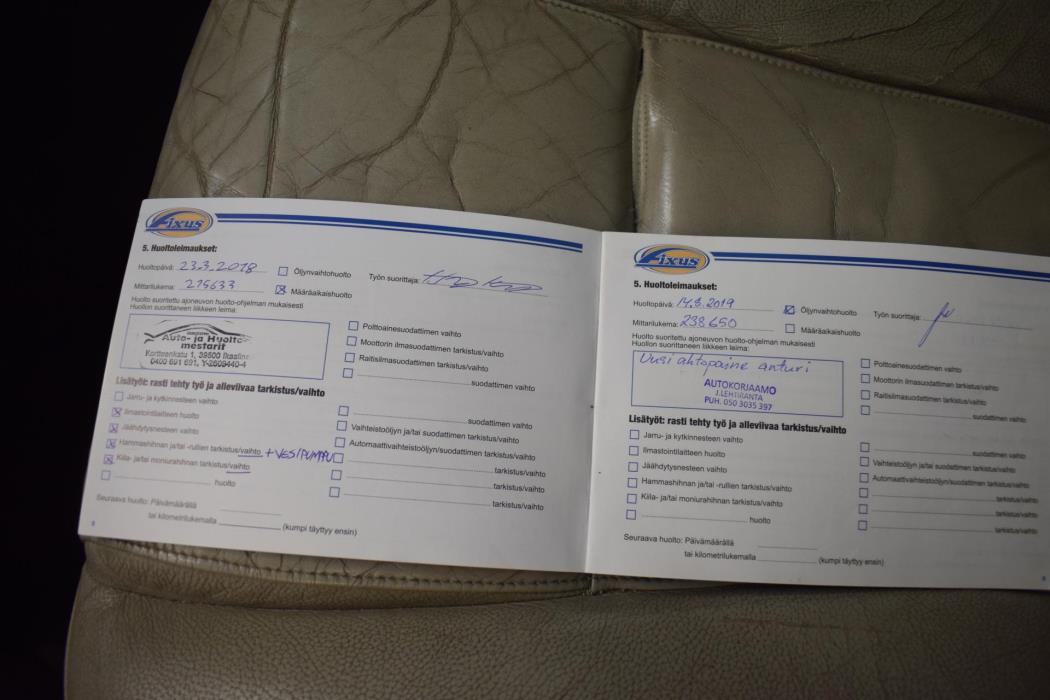 Fixus
5. Huoltoleimaukset:
Huoltopäivä: 23.3.2018
Öljynvaihtohuolto
Työn suorittaja:
Mittarilukema: 215633
Määräaikaishuolto
Huolto suoritettu ajoneuvon huolto-ohjelman mukaisesti
Huollon suorittaneen liikkeen leima:
Auto- ja Huolto-
mestarit
Korttionkatu 1, 39500 Ikaalinen
0400 691 691, Y-2609440-4
Polttoainesuodattimen vaihto
Moottorin ilmasuodattimen tarkistus/vaihto
Raitisilmasuodattimen tarkistus/vaihto
suodattimen vaihto
Lisätyöt: rasti tehty työ ja alleviivaa tarkistus/vaihto
Jarru- ja kytkinnesteen vaihto
Ilmastointilaitteen huolto
Jäähdytysnesteen vaihto
Hammashihnan ja/tai -rullien tarkistus/vaihto +VESIPUMPPU
Kiila- ja/tai moniurahihnan tarkistus/vaihto
huolto
suodattimen vaihto
Vaihteistoöljyn ja/tai suodattimen tarkistus/vaihto
Automaattivaihteistoöljyn/suodattimen tarkistus/vaihto
tarkistus/vaihto
tarkistus/vaihto
tarkistus/vaihto
Seuraava huolto: Päivämäärällä
tai kilometrilukemalla (kumpi täyttyy ensin)
8
Fixus
5. Huoltoleimaukset:
Huoltopäivä: 14.8.2019
Öljynvaihtohuolto
Työn suorittaja:
Mittarilukema: 238650
Määräaikaishuolto
Huolto suoritettu ajoneuvon huolto-ohjelman mukaisesti
Huollon suorittaneen liikkeen leima:
Uusi ahtopaine anturi
AUTOKORJAAMO
J.LEHTIRANTA
PUH. 050 3035 397
Polttoainesuodattimen vaihto
Moottorin ilmasuodattimen tarkistus/vaihto
Raitisilmasuodattimen tarkistus/vaihto
suodattimen vaihto
Lisätyöt: rasti tehty työ ja alleviivaa tarkistus/vaihto
Jarru- ja kytkinnesteen vaihto
Ilmastointilaitteen huolto
Jäähdytysnesteen vaihto
Hammashihnan ja/tai -rullien tarkistus/vaihto
Kiila- ja/tai moniurahihnan tarkistus/vaihto
huolto
suodattimen vaihto
Vaihteistoöljyn ja/tai suodattimen tarkistus/vaihto
Automaattivaihteistoöljyn/suodattimen tarkistus/vaihto
tarkistus/vaihto
tarkistus/vaihto
tarkistus/vaihto
Seuraava huolto: Päivämäärällä
tai kilometrilukemalla (kumpi täyttyy ensin)